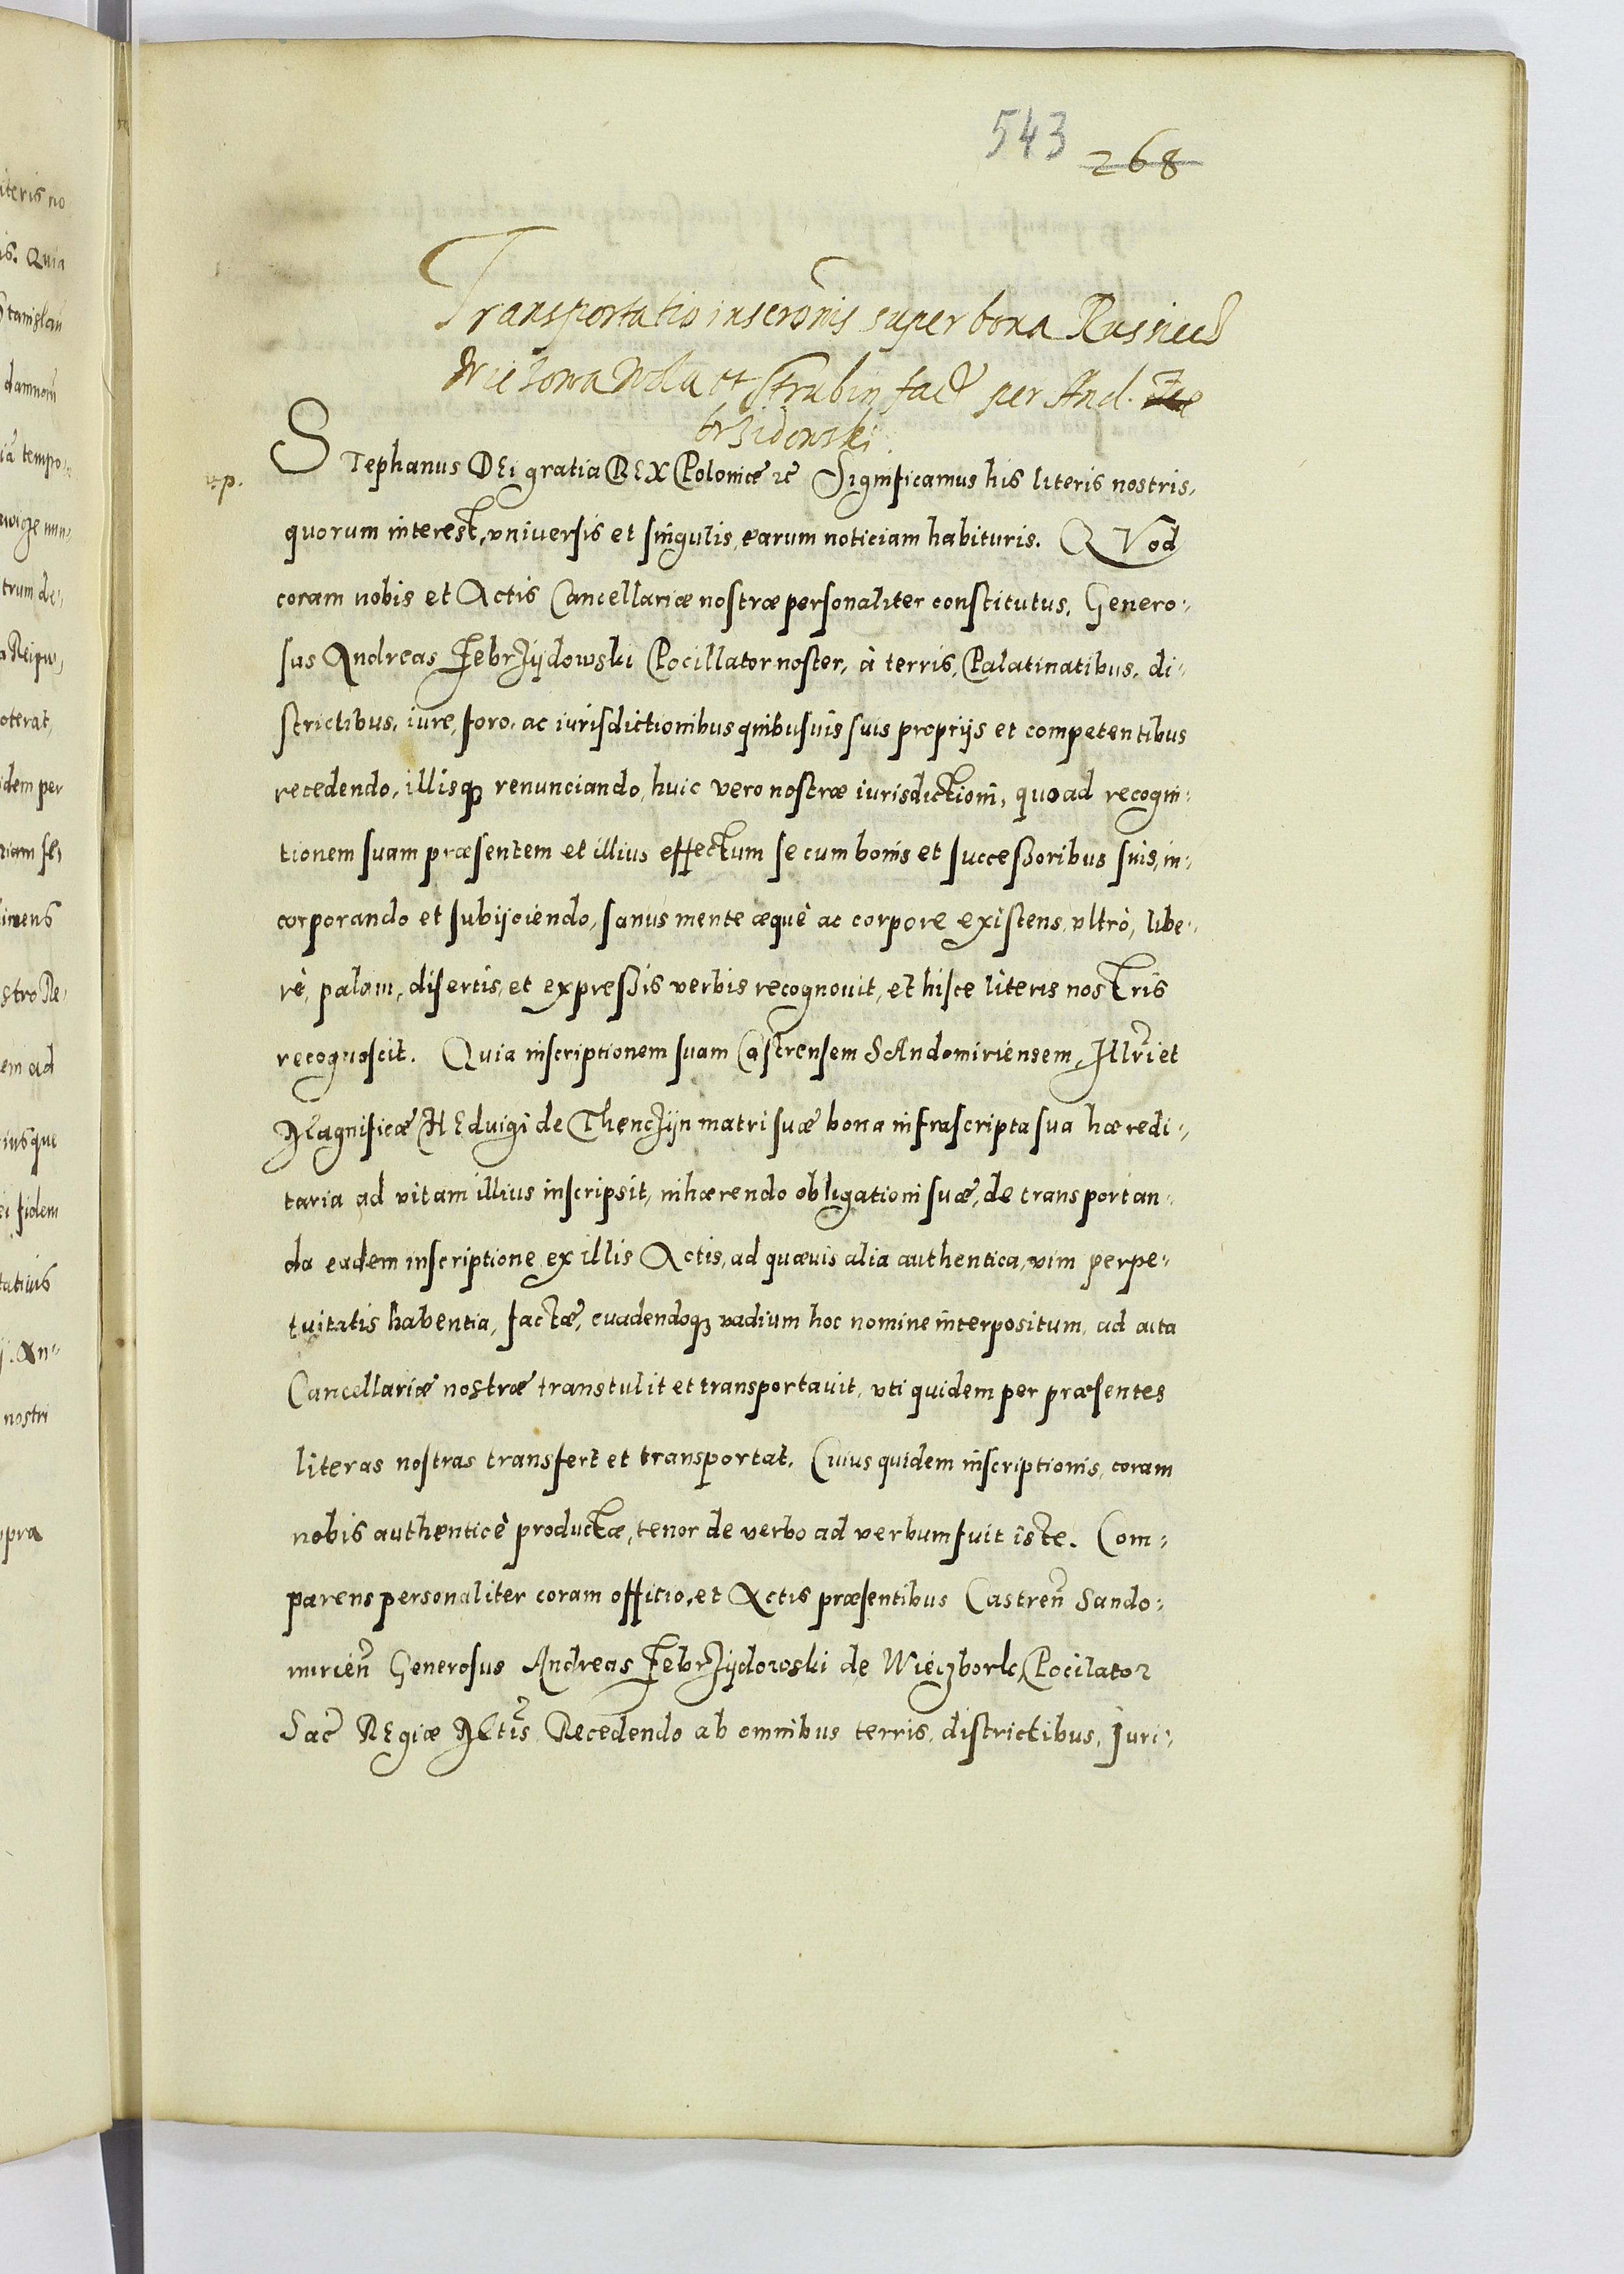 543 268
Transportatio inscrōnis super bona Rusiecz
Wielowa Wola et Strubin fact per And. Ze
brzidowski
STephanus DEi gratia REX Poloniæ etc Significamus his literis nostris,
quorum interest, vniuersis et singulis, earum noticiam habituris. QVod
coram nobis et Actis Cancellariæ nostræ personaliter constitutus, Genero-
sus Andreas Zebrzijdowski Pocillator noster, à terris, Palatinatibus, di-
strictibus, iure, foro, ac iurisdictionibus quibusuis suis proprijs et competentibus
recedendo, illisq3 renunciando, huic vero nostræ iurisdictioni, quo ad recogni-
tionem suam præsentem et illius effectum se cum bonis et successoribus suis, in-
corporando et subijciendo, sanus mente æquè ac corpore existens, vltrò, libe-
rè, palam, disertis, et expressis verbis recognouit, et hisce literis nostris
recognoscit. Quia inscriptionem suam Castrensem SAndomiriensem, Illri et
Magnificæ HEduigi de Thenczijn matri suæ bona infrascripta sua hæredi-
taria ad vitam illius inscripsit, inhærendo obligationi suæ, de transportan-
da eadem inscriptione ex illis Actis, ad quæuis alia authentica, vim perpe-
tuitatis habentia, factæ, euadendoq3 vadium hoc nomine interpositum, ad acta
Cancellariæ nostræ transtulit et transportauit, vti quidem per præsentes
literas nostras transfert et transportat. Cuius quidem inscriptionis, coram
nobis authenticè productæ, tenor de verbo ad verbum fuit iste. Com-
parens personaliter coram officio, et Actis præsentibus Castren Sando-
mirien Generosus Andreas Zebrzijdowski de Wieczbork, Pocilator
Sac REgiæ Mtis Recedendo ab omnibus terris, districtibus, Iuri-